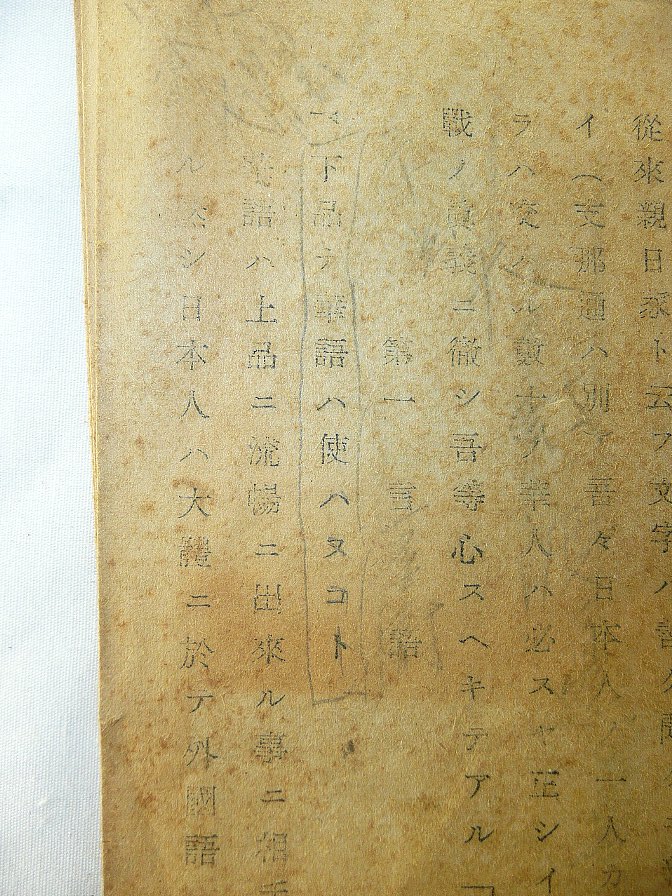 從來親日派ト云フ文字ノ
イ(支那通ハ別 吾々日本人ノ一人カ
ラハ交ハル數十ノ華人ハ必スヤ正シイ
戰ノ眞義ニ徹シ吾等心スヘキテアル「
第一 言語
下品ナ華語ハ使ハヌコト
華語ハ上品ニ流暢ニ出來ル事ニ相
ル然シ日本人ハ大體ニ於テ外國語